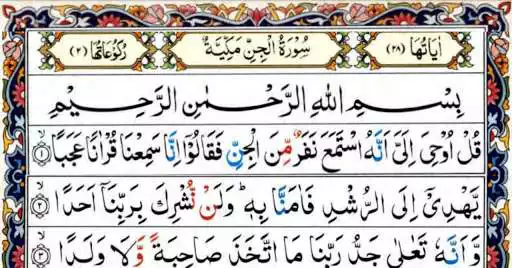 اٰيَاتُهَا (٢٨) سُوْرَةُ الْجِنِّ مَكِّيَّةٌ رُكُوْعَاتُهَا (٢)
بِسْمِ اللهِ الرَّحْمٰنِ الرَّحِيْمِ
قُلْ اُوْحِىَ اِلَىَّ اَنَّهُ اسْتَمَعَ نَفَرٌ مِّنَ الْجِنِّ فَقَالُوْٓا اِنَّا سَمِعْنَا قُرْاٰنًا عَجَبًا ۙ‏ ١
يَّهْدِىْۤ اِلَى الرُّشْدِ فَاٰمَنَّا بِهٖ‌ؕ وَلَنْ نُّشْرِكَ بِرَبِّنَاۤ اَحَدًا ۙ‏ ٢
وَّاَنَّهٗ تَعٰلٰى جَدُّ رَبِّنَا مَا اتَّخَذَ صَاحِبَةً وَّلَا وَلَدًا ۙ‏ ٣